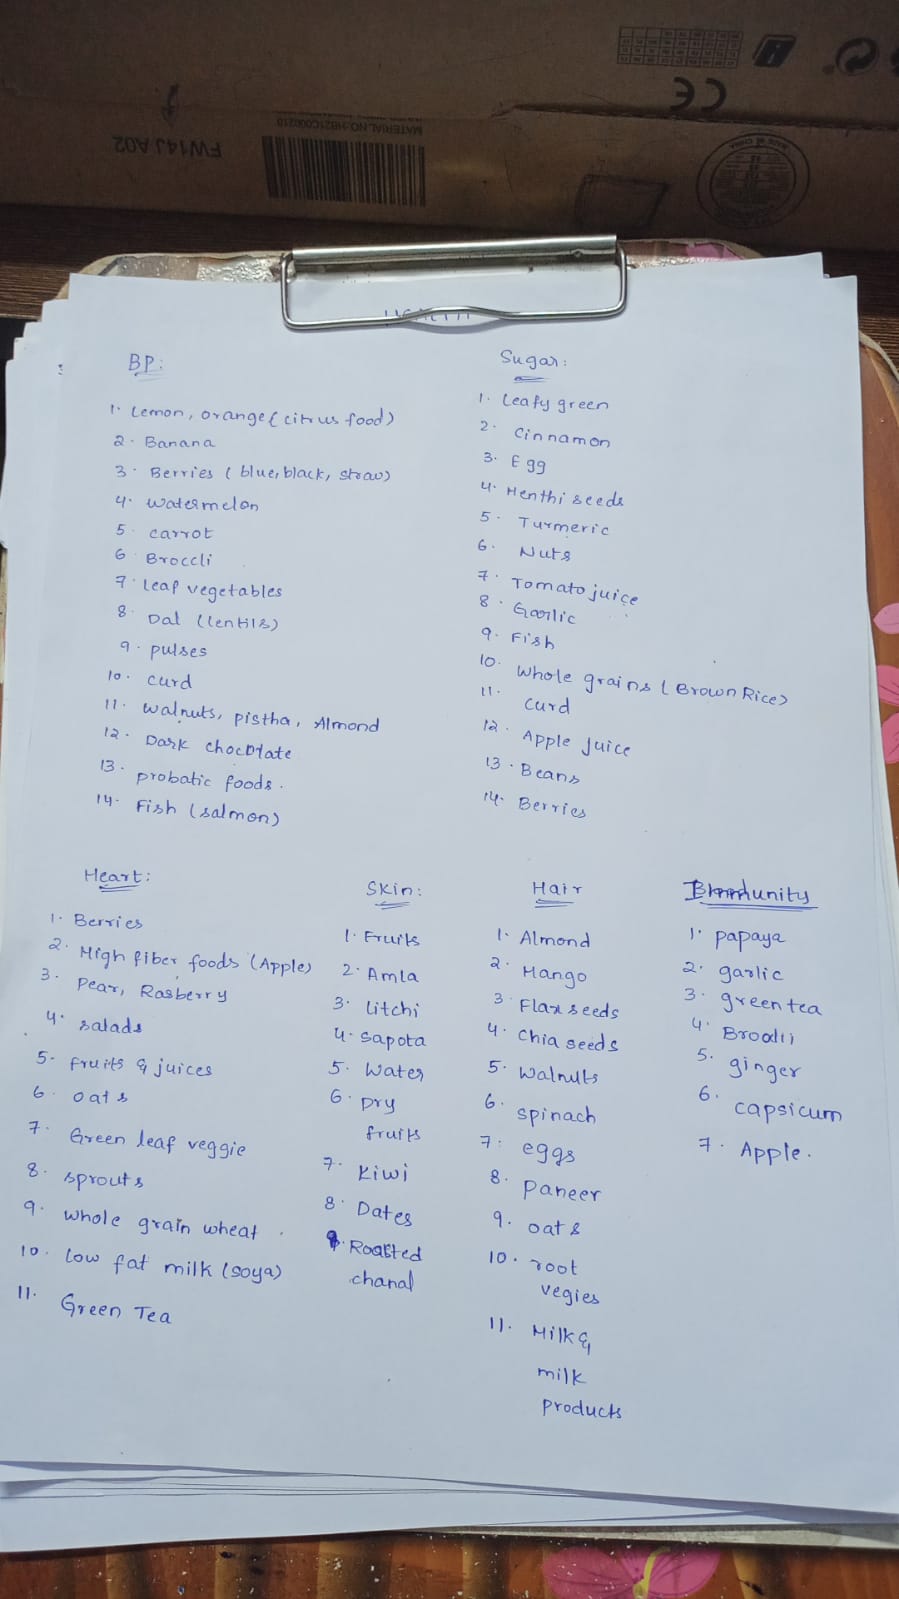 FW14J A02
MATERIAL NO:HB21C000210
CE
BP:
1. Lemon, orange (citrus food)
2. Banana
3. Berries ( blue, black, straw)
4. watermelon
5. carrot
6 Broccli
7. leaf vegetables
8. Dal (lentils)
9. pulses
10. curd
11. walnuts, pistha, Almond
12. Dark chocolate
13. probatic foods.
14. Fish (salmon)
Sugar:
1. Leafy green
2. Cinnamon
3. Egg
4. Menthi seeds
5. Turmeric
6. Nuts
7. Tomato juice
8. Garlic
9. Fish
10. Whole grains (Brown Rice)
11. curd
12. Apple juice
13. Beans
14. Berries
Heart:
1. Berries
2. High fiber foods (Apple)
3. Pear, Rasberry
4. salads
5. fruits & juices
6. oats
7. Green leaf veggie
8. sprouts
9. whole grain wheat.
10. low fat milk (soya)
11. Green Tea
Skin:
1. Fruits
2. Amla
3. litchi
4. sapota
5. Water
6. Dry
fruits
7. Kiwi
8. Dates
9. Roasted
chanal
Hair
1. Almond
2. Mango
3. Flax seeds
4. Chia seeds
5. Walnuts
6. spinach
7. eggs
8. Paneer
9. oats
10. root
vegies
11. Milk &
milk
products
1. papaya
2. garlic
3. green tea
4.
5. ginger
6. capsicum
7. Apple.